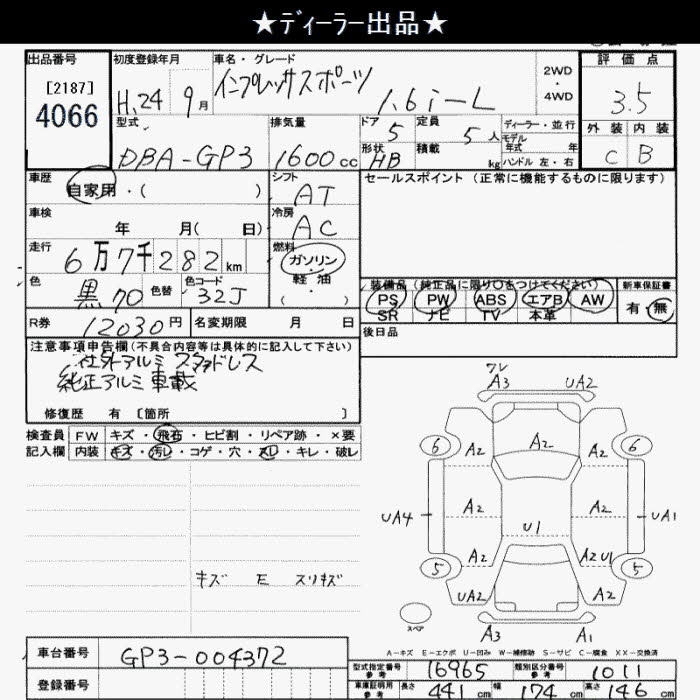 ★ディーラー出品★
出品番号 初度登録年月 車名・グレード 評価点
[2187] H.24 9月 インプレッサスポーツ 2WD・4WD
4066 1.6i-L 3.5
型式 排気量 ドア 5 定員 5人 ディーラー・並行 外装 内装
モデル年式 年
DBA-GP3 1600cc 形状 HB 積載 kg ハンドル 左・右 C B
車歴 自家用・( ) シフト AT セールスポイント (正常に機能するものに限ります)
車検 年 月( 日) 冷房 AC
走行 6万7千282km 燃料 ガソリン・軽油・( )
色 黒 70 色替 色コード 32J
装備品 (純正品に限り○をつけてください) 新車保証書
PS PW ABS エアB AW 有・無
SR ナビ TV 本革
R券 12030円 名変期限 月 日 後日品
注意事項申告欄(不具合内容等は具体的に記入して下さい)
社外アルミ スタッドレス
純正アルミ車載
修復歴 有 [箇所 ]
検査員 FW キズ・飛石・ヒビ割・リペア跡・×要
記入欄 内装 キズ・汚レ・コゲ・穴・スレ・キレ・破レ
ワレ
A3 UA2
6 A2 A2 A2 6
UA4 A2 A2 UA1
U1
5 A2 A2U1 5
UA2 A2
キズ E スリキズ
スペア
A3 A1
A-キズ E-エクボ U-凹み W-補修跡 S-サビ C-腐食 XX-交換済
車台番号 GP3-004372
型式指定番号 参考 16965 類別区分番号 参考 1011
登録番号
車庫証明用 参考 長さ 441cm 幅 174cm 高さ 146cm